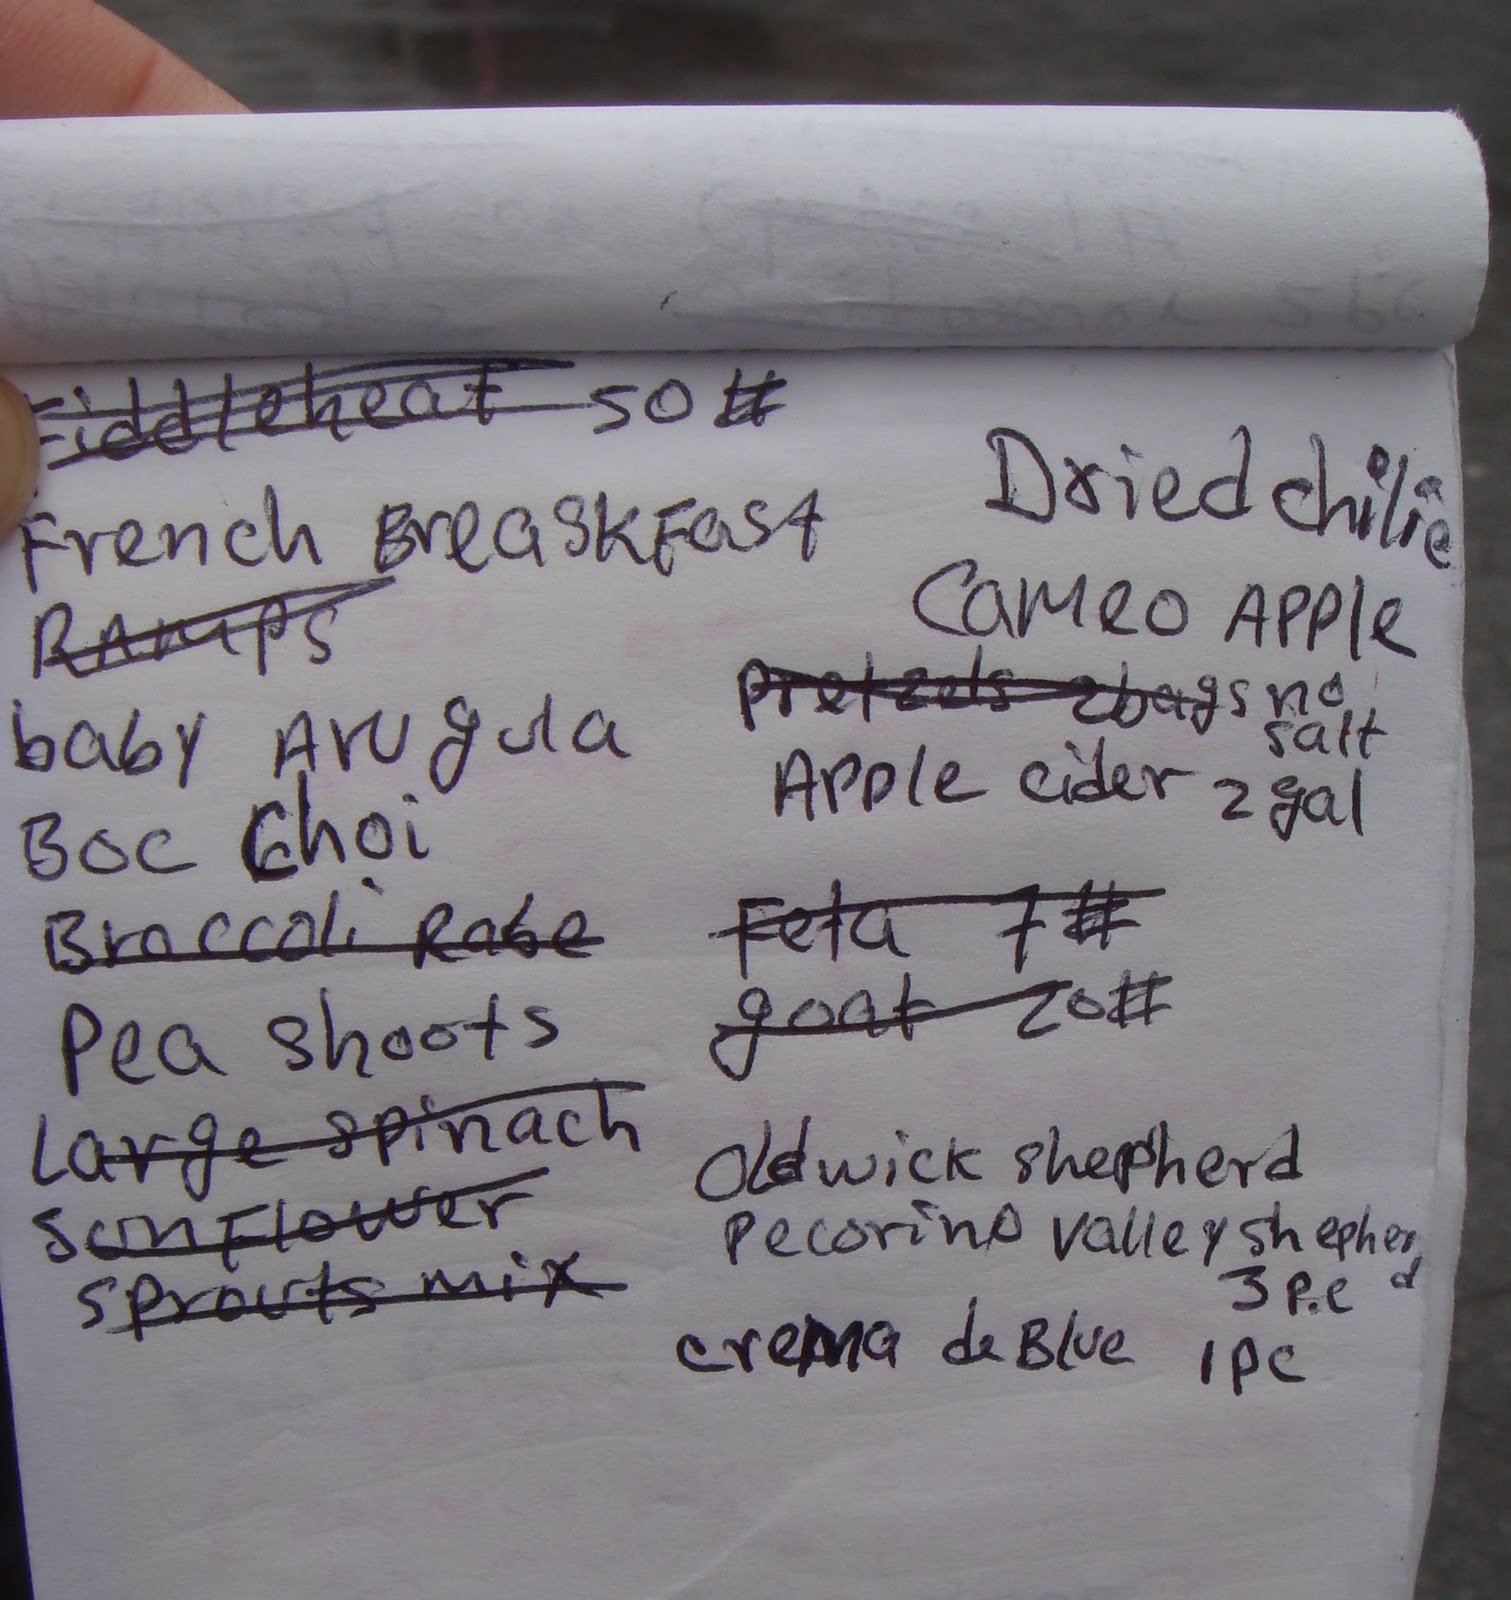 Fiddleheat 50 #
French BreaskFast
RAMPS
baby Arugula
Boc Choi
Broccoli Rabe
Pea shoots
Large spinach
sunflower
sprouts mix
Dried chilie
Cameo Apple
Pretzels 2 bags no
salt
Apple cider 2 gal
Feta 7 #
goat 20#
Oldwick shepherd
Pecorino valley shepher
d
3 P.C
crema de Blue 1 PC